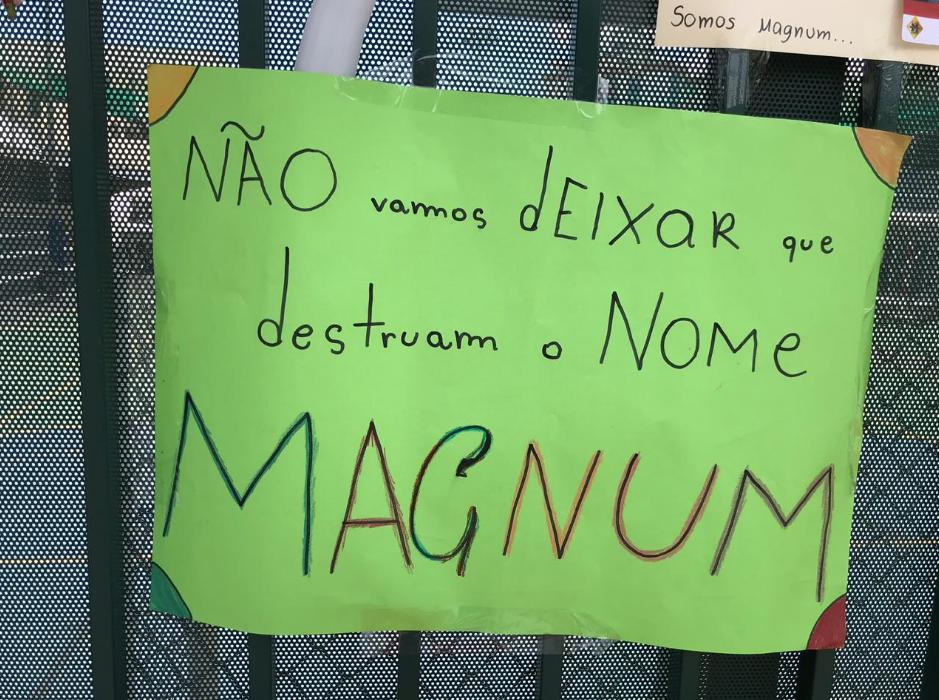 Somos Magnum...
NÃO vamos dEIXAR que
destruam o NOMe
MAGNUM